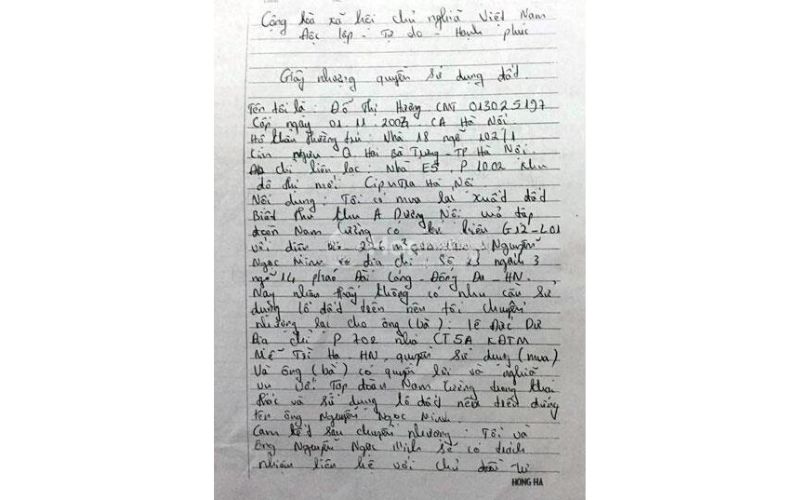 Cộng hòa xã hội chủ nghĩa Việt Nam
Độc lập - Tự do - Hạnh phúc
Giấy nhượng quyền sử dụng đất
Tên tôi là: Đỗ Thị Hương CMT 013025197
Cấp ngày 01.11.2007. CA Hà Nội
Hộ khẩu thường trú: Nhà 18 ngõ 102/1
Q Hai Bà Trưng - TP Hà Nội.
Địa chỉ liên lạc: Nhà E5, P 1002 khu
đô thị mới Ciputra Hà Nội
Nội dung: Tôi có mua lại xuất đất
Biệt thự khu A Dương Nội của tập
đoàn Nam Cường có ký hiệu G12-L01
với diện tích 226 m² Nguyễn
Ngọc Minh có địa chỉ số 23 ngách 3
ngõ 14 phố - Đống Đa - HN.
Nay nhận thấy không có nhu cầu sử
dụng lô đất trên nên tôi chuyển
nhượng lại cho ông (bà): Lê Đức Dư
Địa chỉ P 702 nhà CT5A KĐTM
Mễ Trì Hạ HN quyền sử dụng (mua)
Và ông (bà) có quyền lợi và nghĩa
vụ với Tập đoàn Nam Cường trong khai
thác và sử dụng lô đất nêu trên đứng
tên ông Nguyễn Ngọc Minh.
Cam kết sau chuyển nhượng: Tôi và
ông Nguyễn Ngọc Minh sẽ có trách
nhiệm liên hệ với chủ đầu tư
HONG HA